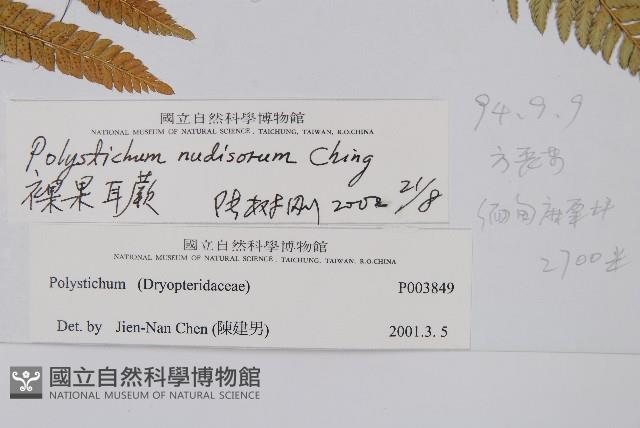 國立自然科學博物館
NATIONAL MUSEUM OF NATURAL SCIENCE, TAICHUNG, TAIWAN, R.O.CHINA
Polystichum nudisorum Ching
裸果耳蕨 陸树刚 2002 21/8
國立自然科學博物館
NATIONAL MUSEUM OF NATURAL SCIENCE, TAICHUNG, TAIWAN, R.O.CHINA
Polystichum (Dryopteridaceae) P003849
Det. by Jien-Nan Chen (陳建男) 2001. 3. 5
94.9.9
方
緬甸
2700
國立自然科學博物館
NATIONAL MUSEUM OF NATURAL SCIENCE